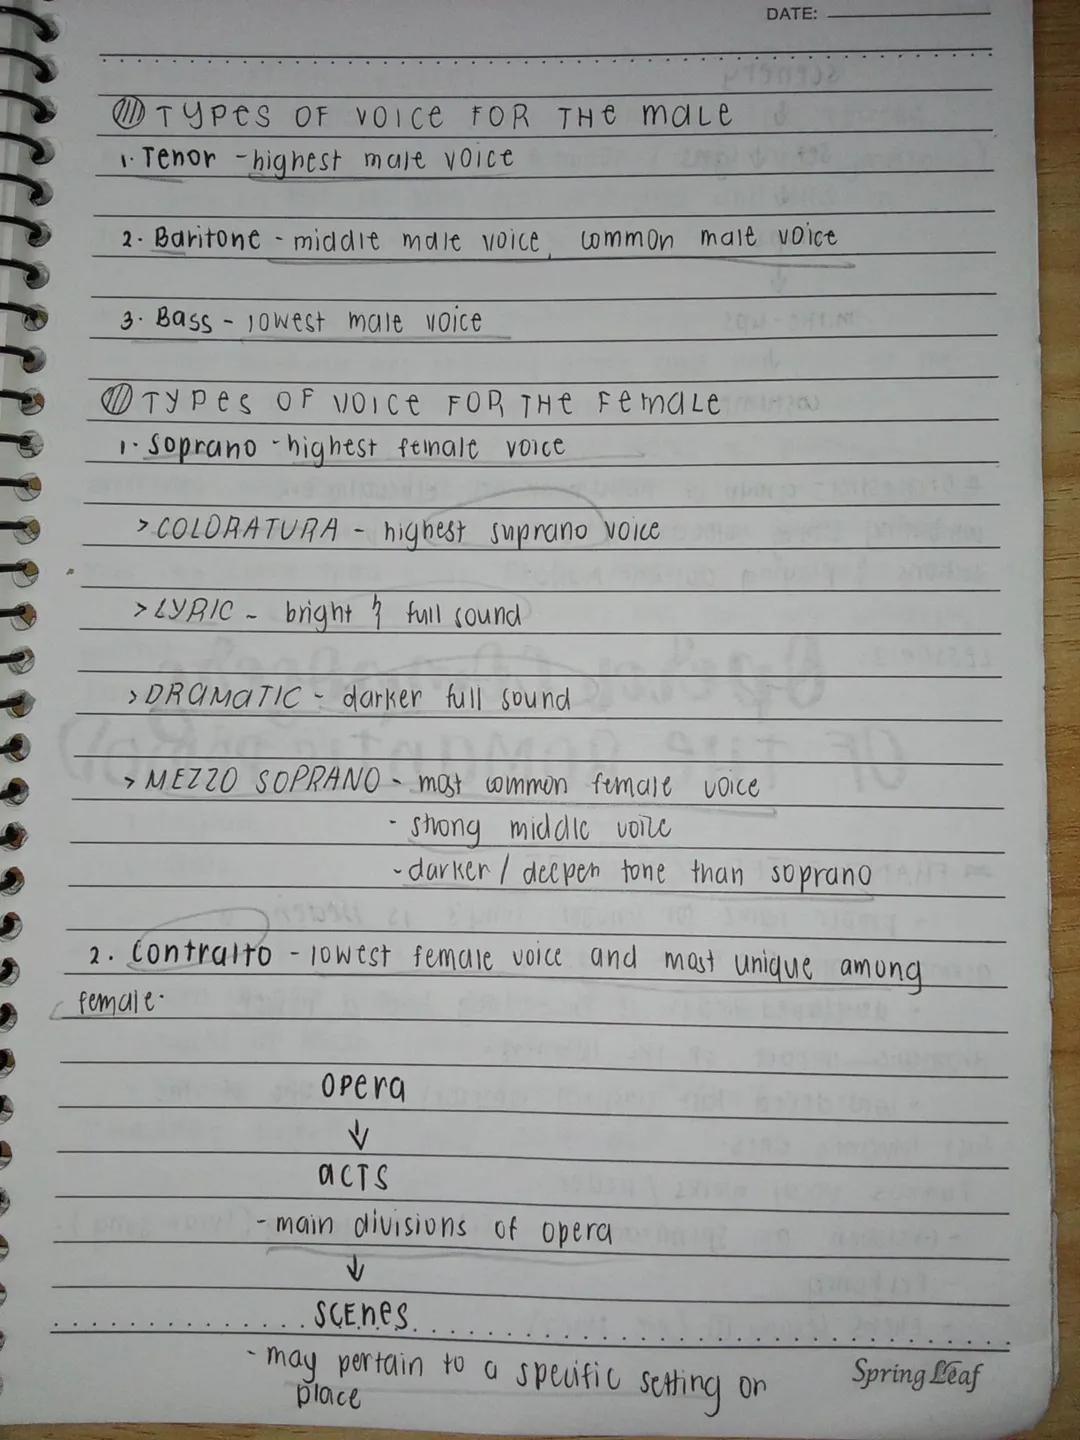 DATE:
TYPES OF VOICE FOR THE MALE
1. Tenor - highest male voice
2. Baritone - middle male voice, common male voice
3. Bass - lowest male voice
TYPES OF VOICE FOR THE FEMALE
1. Soprano - highest female voice
> COLORATURA - highest suprano voice
> LYRIC - bright & full sound
> DRAMATIC - darker full sound
> MEZZO SOPRANO - most common female voice
- strong middle voice
- darker / deeper tone than soprano
2. Contralto - lowest female voice and most unique among
female.
OPERA
↓
ACTS
- main divisions of opera
↓
SCENES
- may pertain to a specific setting or
place
Spring Leaf